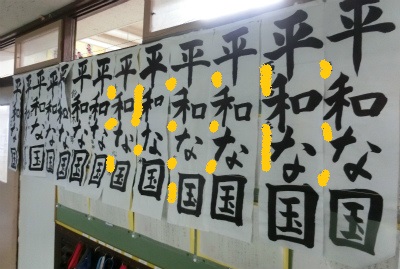 平和な国
平和な国
平和な国
平和な国
平和な国
平和な国
平和な国
平和な国
平和な国
平和な国
平和な国
平和な国